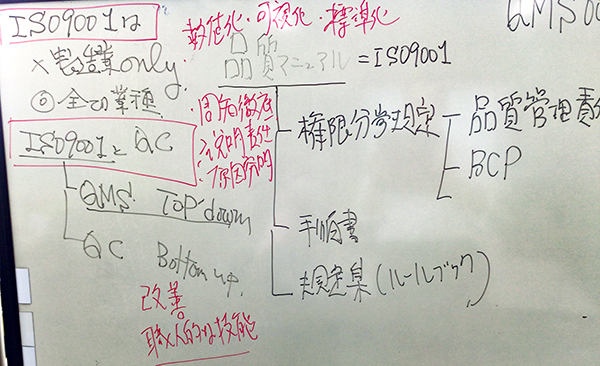 ISO9001は
× 製造業only
◎ 全ての業種
ISO9001と QC
QMS! Top down
QC Bottom up.
改善。
職人的な技能
数値化・可視化・標準化
・周知徹底
・説明責任
・原因究明
品質マニュアル = ISO9001
権限分掌規定
品質管理責
BCP
手順書
規定集(ルールブック)
QMS00